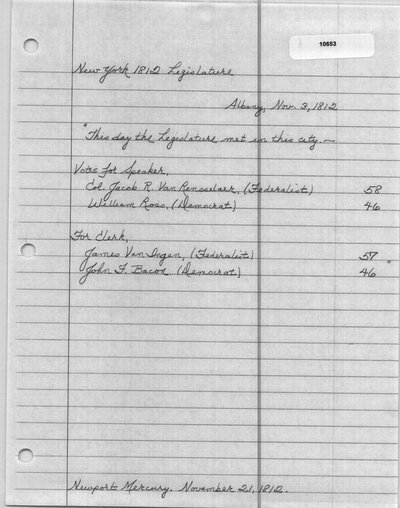 10653
New York 1812 Legislature
Albany, Nov. 3, 1812
"This day the Legislature met in this city.—
Votes for Speaker,
Col. Jacob R. Van Rensselaer, (Federalist) 58
William Ross, (Democrat) 46
For Clerk,
James Van Ingen, (Federalist) 57
John F. Bacon, (Democrat) 46"
Newport Mercury. November 21, 1812.